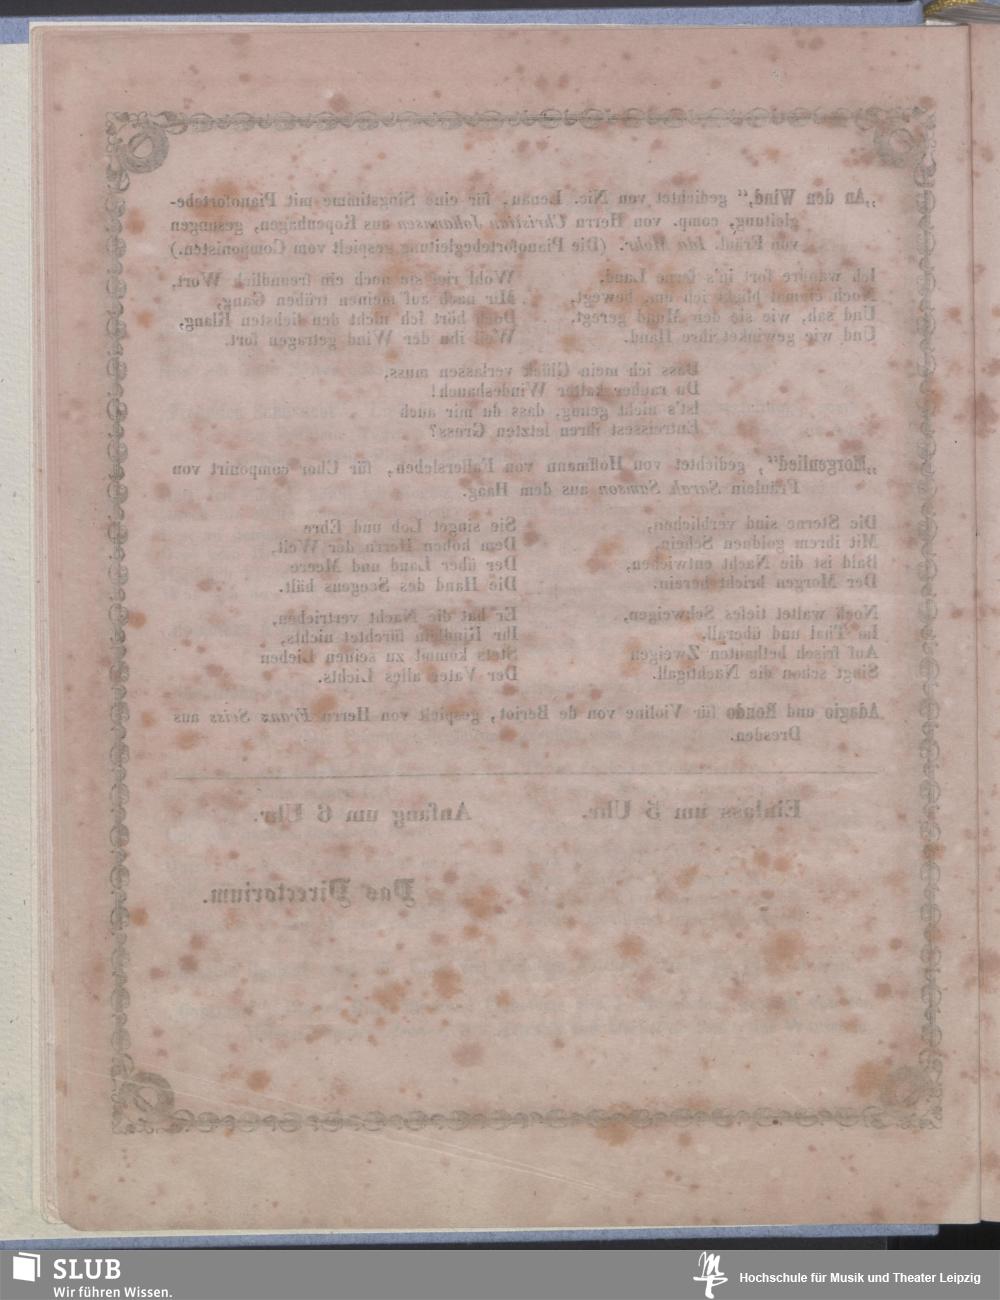 „An den Wind,“ gedichtet von Nic. Lenau, für eine Singstimme mit Pianofortebe-
gleitung, comp. von Herrn Christian Johannsen aus Kopenhagen, gesungen
von Fräul. Ida Mohr. (Die Pianofortebegleitung gespielt vom Componisten.)
Ich wandre fort in's ferne Land,
Noch einmal blickt ich um, bewegt,
Und sah, wie sie den Mund geregt,
Und wie gewinket ihre Hand.
Wohl rief sie noch ein freundlich Wort,
Mir nach auf meinen trüben Gang,
Doch hört ich nicht den liebsten Klang,
Weil ihn der Wind getragen fort.
Dass ich mein Glück verlassen muss,
Du rauher kalter Windeshauch!
Ist's nicht genug, dass du mir auch
Entreissest ihren letzten Gruss?
„Morgenlied“, gedichtet von Hoffmann von Fallersleben, für Chor componirt von
Fräulein Sarah Samson aus dem Haag.
Die Sterne sind verblichen,
Mit ihrem goldnen Schein,
Bald ist die Nacht entwichen,
Der Morgen bricht herein.
Noch waltet tiefes Schweigen,
Im Thal und überall,
Auf frisch bethauten Zweigen
Singt schon die Nachtigall.
Sie singet Lob und Ehre
Dem hohen Herrn der Welt,
Der über Land und Meere
Die Hand des Seegens hält.
Er hat die Nacht vertrieben,
Ihr Kindlein fürchtet nichts,
Stets kommt zu seinen Lieben
Der Vater alles Lichts.
Adagio und Rondo für Violine von de Beriot, gespielt von Herrn Franz Seiss aus
Dresden.
Einlass um 5 Uhr.
Anfang um 6 Uhr.
Das Directorium.
SLUB
Wir führen Wissen.
Hochschule für Musik und Theater Leipzig